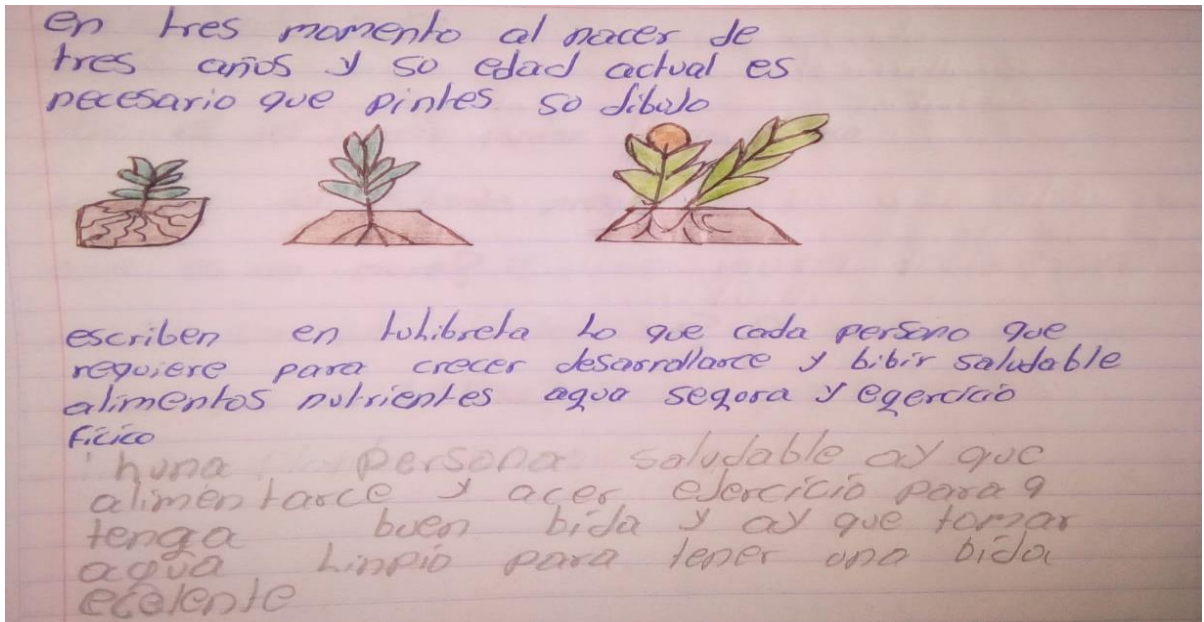 en tres momento al nacer de
tres años y so edad actual es
necesario que pintes so dibujo
escriben en tulibreta lo que cada persona que
requiere para crecer desarrollarce y bibir saludable
alimentos nutrientes agua segora y egercicio
ficico
huna persona saludable ay que
alimentarce y acer ejercicio para q
tenga buen bida y ay que tomar
agua linpio para tener una bida
ecelente